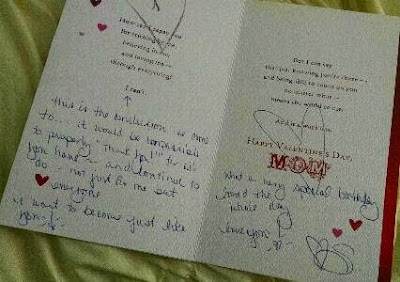 How can I repay you
for
believing in me,
and loving me --
through everything?
I can't.
This is the conclusion we come
to... it would be impossible
to properly "Thank you!" for all
you have - and continue to
do - not just for me but
everyone
I want to become just like
you!
But I can say
that just knowing you're there --
and being able to count on you
no matter what --
means the world to me.
HAPPY VALENTINE'S DAY,
MOM
What a very special birthday
loved the
day!
Love you!